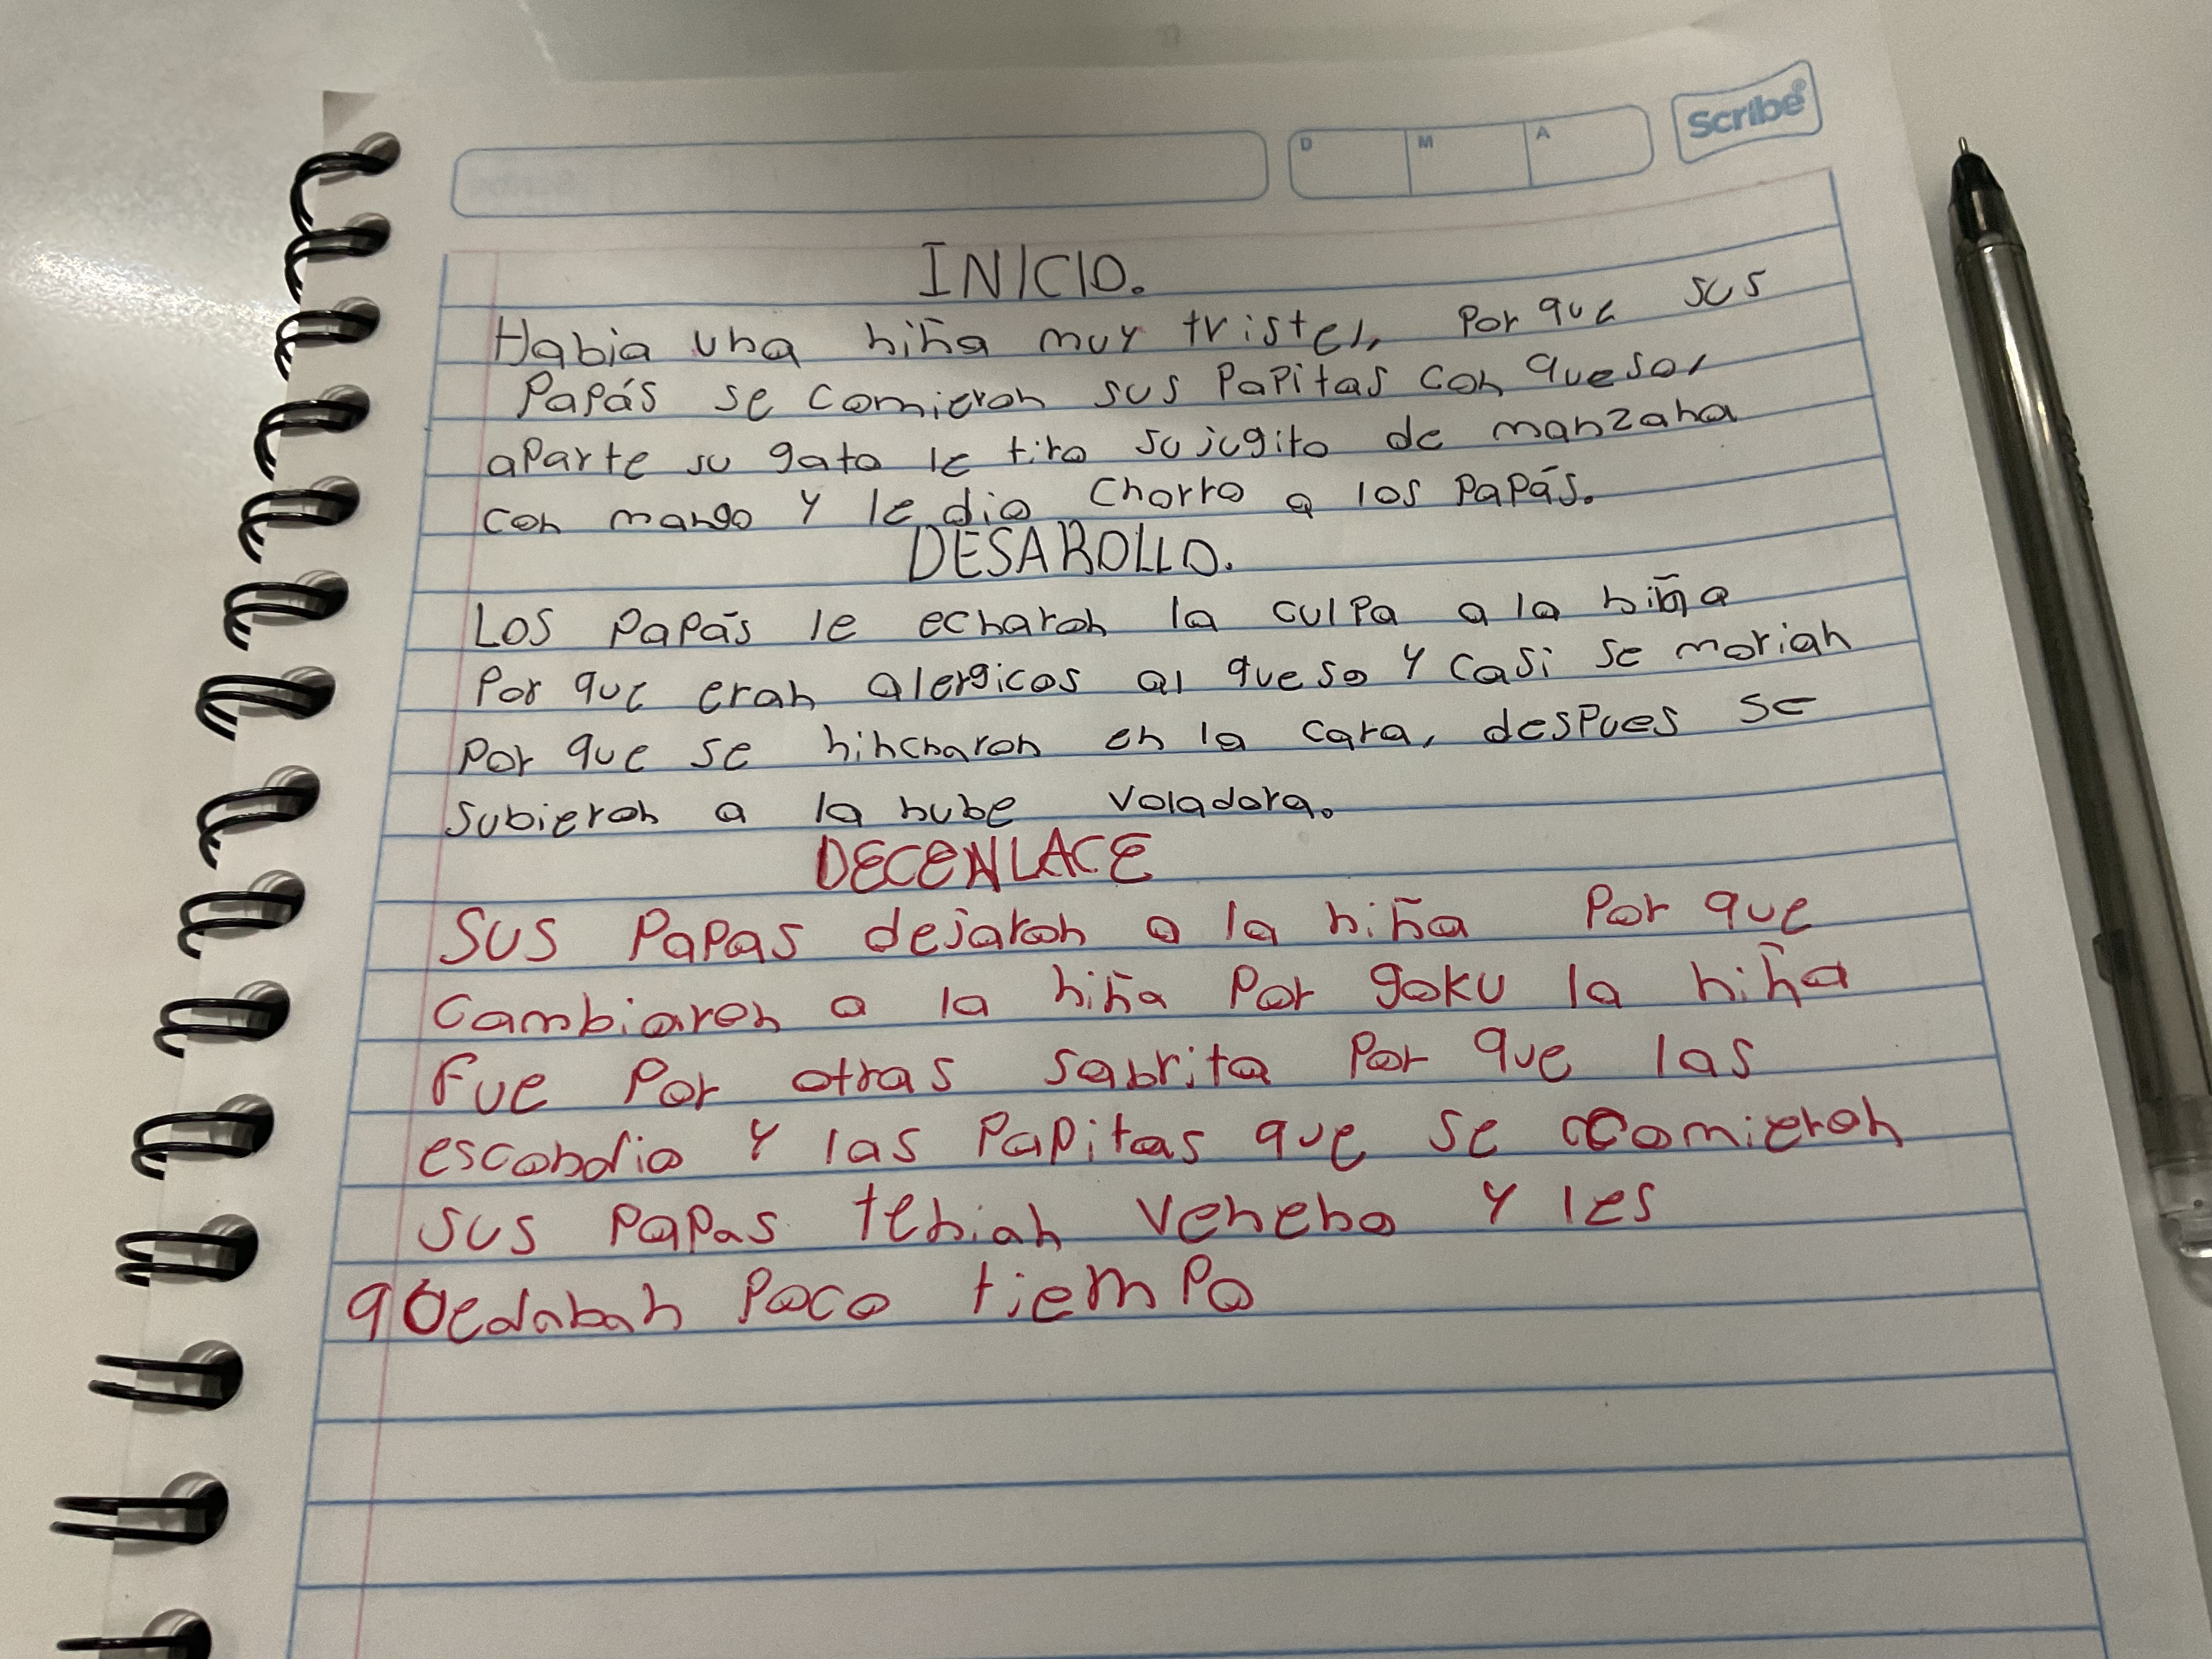 Scribe
D M A
INICIO.
Habia una niña muy triste, Por que sus
Papás se comieron sus Papitas con queso,
aparte su gato le tiro su jugito de manzana
con mango y le dio chorro a los Papás.
DESAROLLO.
Los Papás le echaron la culpa a la niña
Por que eran alergicos al queso y casi se morian
Por que se hincharon en la cara, despues se
subieron a la nube voladora.
DECENLACE
Sus Papas dejaron a la niña Por que
cambiaron a la niña Por goku la niña
Fue Por otras sabrita Por que las
escondio y las Papitas que se comieron
sus Papas tenian veneno y les
quedaban Poco tiempo